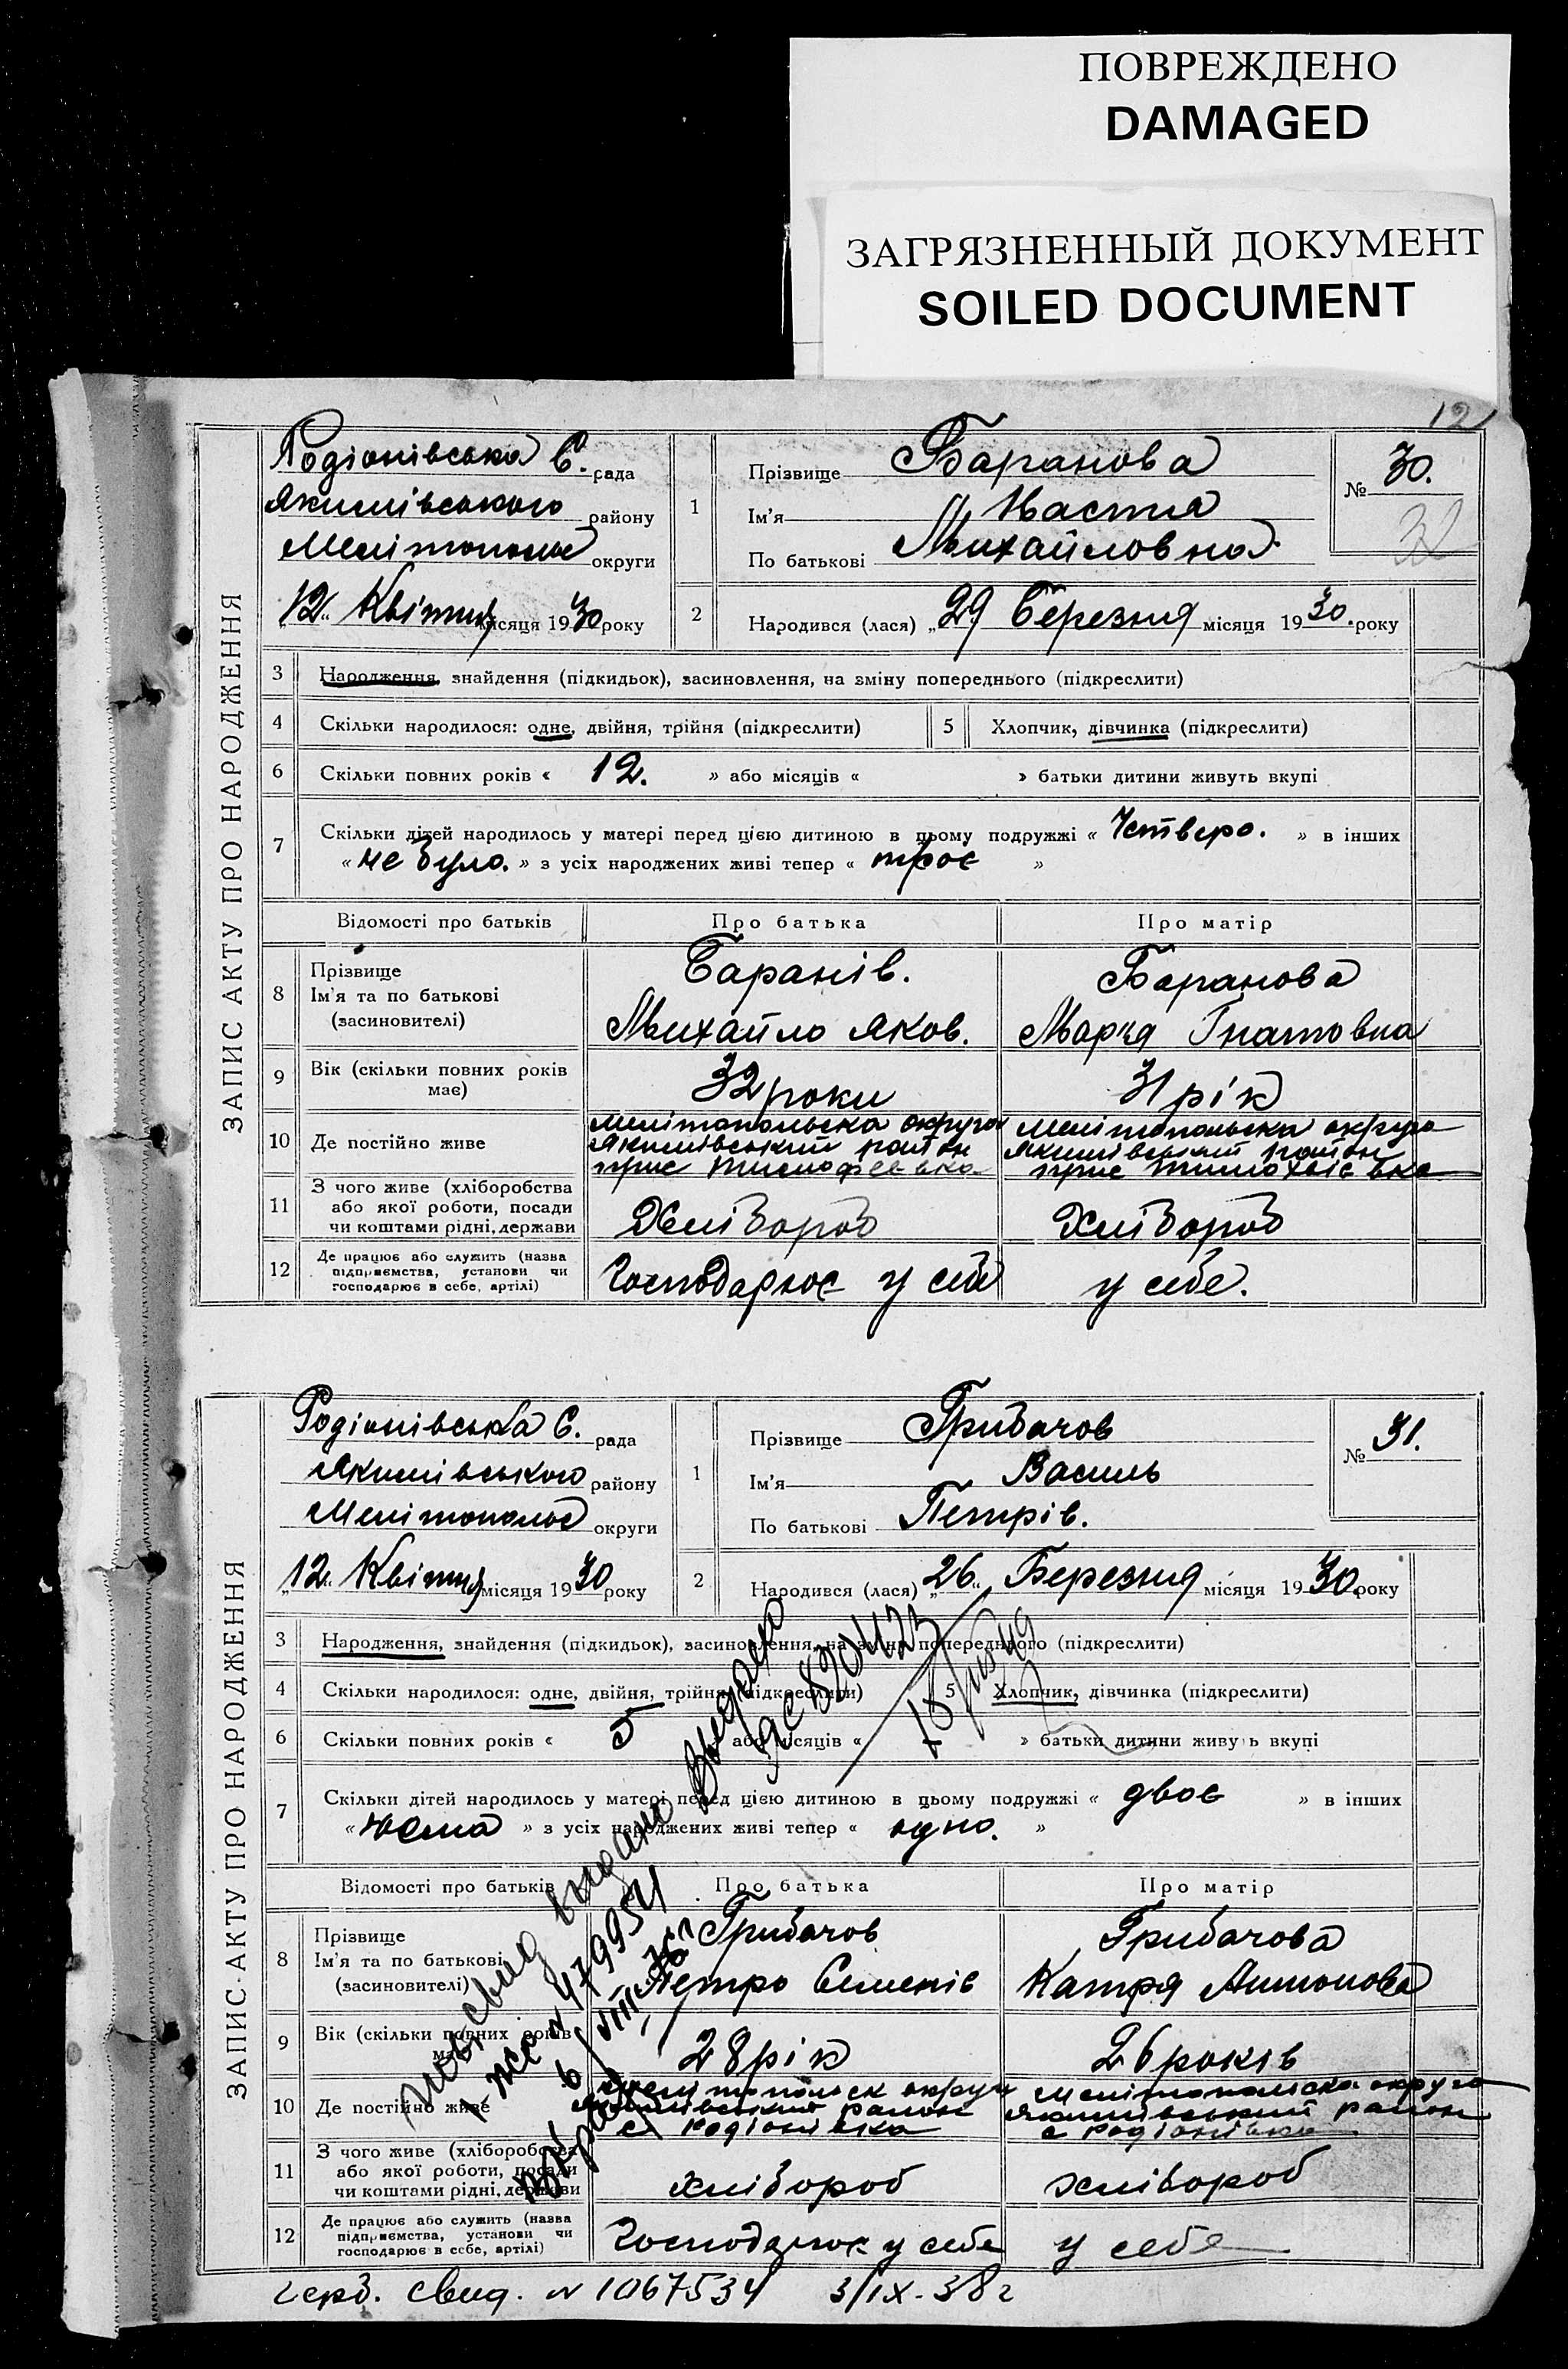 ПОВРЕЖДЕНО
DAMAGED
ЗАГРЯЗНЕННЫЙ ДОКУМЕНТ
SOILED DOCUMENT
12
ЗАПИС АКТУ ПРО НАРОДЖЕННЯ
Родіонівська С. рада
Якимівського району
Мелітопольс округи
„12“ Квітня місяця 1930 року
1 Прізвище Баранова
Ім'я Настя
По батькові Михайловна
№ 30.
32
2 Народився (лася) „29 Березня місяця 1930. року
3 Народження, знайдення (підкидьок), засиновлення, на зміну попереднього (підкреслити)
4 Скільки народилося: одне, двійня, трійня (підкреслити) 5 Хлопчик, дівчинка (підкреслити)
6 Скільки повних років « 12. » або місяців « » батьки дитини живуть вкупі
7 Скільки дітей народилось у матері перед цією дитиною в цьому подружжі « Четверо. » в інших
« не було. » з усіх народжених живі тепер « троє »
Відомості про батьків Про батька Про матір
8 Прізвище Ім'я та по батькові (засиновителі)
Баранів. Михайло Яков.
Баранова Марія Гнатовна
9 Вік (скільки повних років має) 32 роки 31 рік
10 Де постійно живе
Мелітопольска округа Якимівський район
Тимофеевка
Мелітопольска округа Якимівський район
11 З чого живе (хліборобства або якої роботи, посади чи коштами рідні, держави
Хлібороб Хлібороб
12 Де працює або служить (назва підприємства, установи чи господарює в себе, артілі)
Господарює у себе у себе.
ЗАПИС АКТУ ПРО НАРОДЖЕННЯ
Родіонівська С. рада
Якимівського району
Мелітопольс округи
„12“ Квітня місяця 1930 року
1 Прізвище Грибачов
Ім'я Василь
По батькові Петрів.
№ 31.
2 Народився (лася) „26“ Березня місяця 1930 року
3 Народження, знайдення (підкидьок), засиновлення, на зміну попереднього (підкреслити)
4 Скільки народилося: одне, двійня, трійня (підкреслити) 5 Хлопчик, дівчинка (підкреслити)
6 Скільки повних років « 5 » або місяців « » батьки дитини живуть вкупі
7 Скільки дітей народилось у матері перед цією дитиною в цьому подружжі « двоє » в інших
« нема » з усіх народжених живі тепер « одно. »
Відомості про батьків Про батька Про матір
8 Прізвище Ім'я та по батькові (засиновителі)
Грибачов Петро Семенів
Грибачова Катря Антонова
9 Вік (скільки повних років має) 28 рік 26 років
10 Де постійно живе
Мелітопольск округа Якимівський район с Родіонівка
Мелітопольска округа Якимівський район с Родіонівка
11 З чого живе (хліборобства або якої роботи, посади чи коштами рідні, держави
хлібороб хлібороб
12 Де працює або служить (назва підприємства, установи чи господарює в себе, артілі)
Господарює у себе у себе
герб. свид. № 1067534 3/IX-38 г